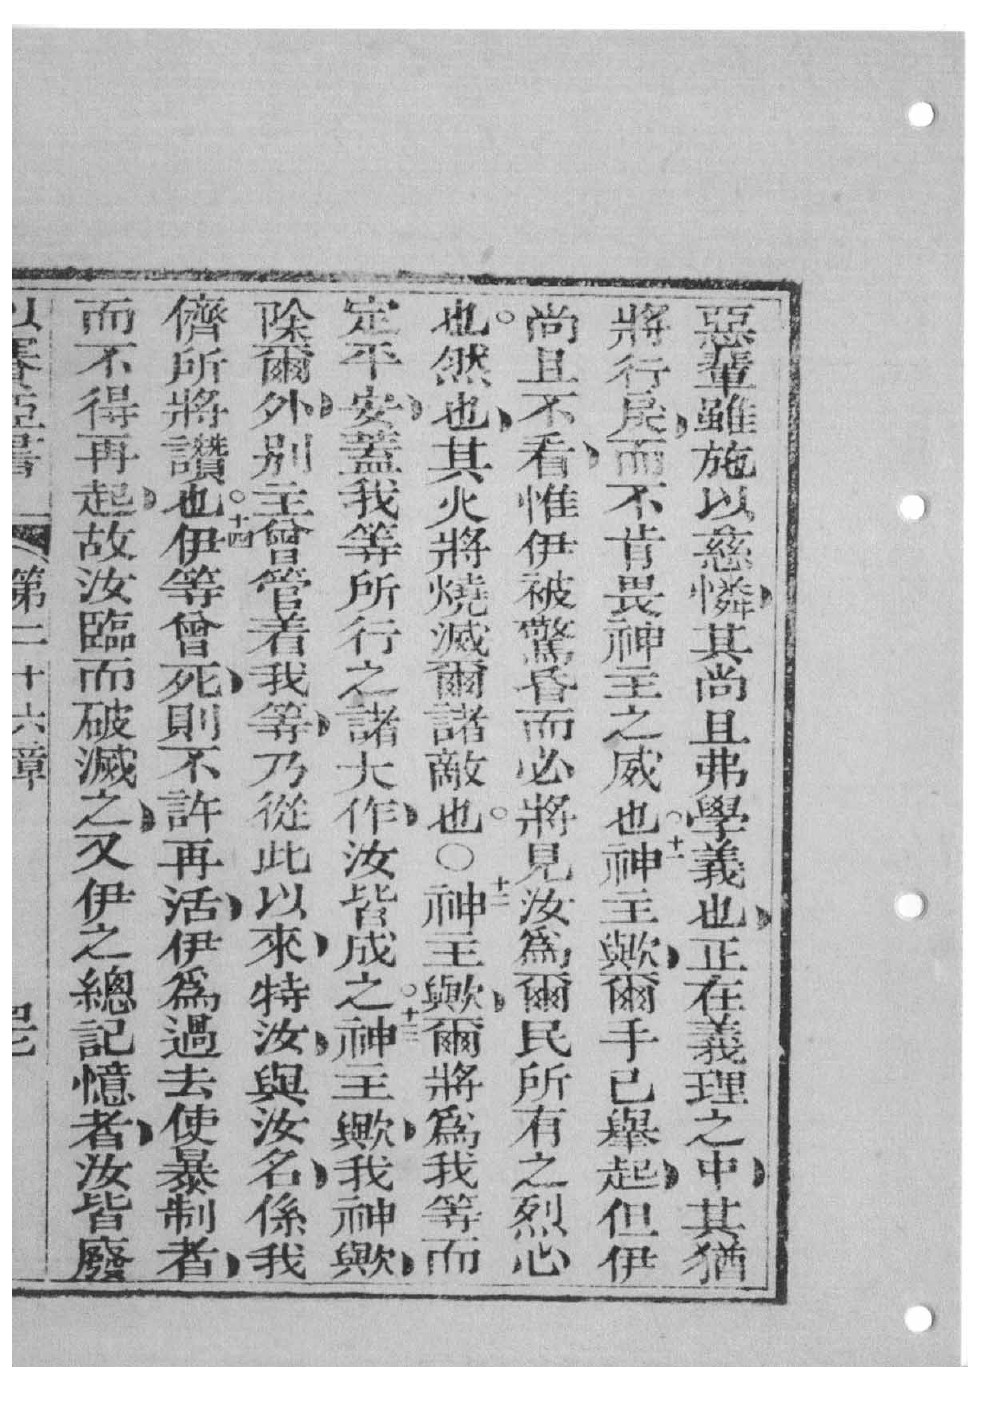 惡輩雖施以慈憐其尚且弗學義也正在義理之中其猶
將行戾而不肯畏神主之威也○十一神主歟爾手已舉起但伊
尚且不看惟伊被驚昏而必將見汝為爾民所有之烈心
也○然也其火將燒滅爾諸敵也○○十二神主歟爾將為我等而
定平安蓋我等所行之諸大作汝皆成之○十三神主歟我神歟
除爾外別主曾管着我等乃從此以來特汝與汝名係我
儕所將讚也○十四伊等曾死則不許再活伊為過去使暴制者
而不得再起故汝臨而破滅之又伊之總記憶者汝皆廢
以賽亞書 第二十六章